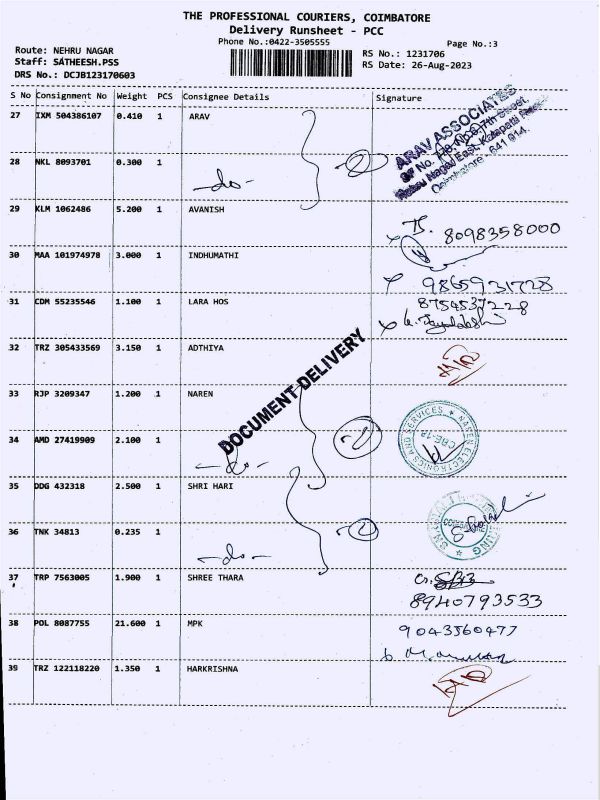 THE PROFESSIONAL COURIERS, COIMBATORE
Delivery Runsheet - PCC
Phone No.:0422-3505555
Page No.:3
Route: NEHRU NAGAR
RS No.: 1231706
Staff: SATHEESH.PSS
RS Date: 26-Aug-2023
DRS No.: DCJB123170603
S No Consignment No Weight PCS Consignee Details Signature
27 IXM 504386107 0.410 1 ARAV
ARAV ASSOCIATES
7th Street
Nehru Nagar East, Kalapatti Road
Coimbatore - 641 014.
28 NKL 8093701 0.300 1
-do- 2
29 KLM 1062486 5.200 1 AVANISH
8098358000
30 MAA 101974978 3.000 1 INDHUMATHI
9865931728
31 CDM 55235546 1.100 1 LARA HOS
8754537228
32 TRZ 305433569 3.150 1 ADTHIYA
DOCUMENT DELIVERY
33 RJP 3209347 1.200 1 NAREN
NAREN ELECTRONICS AND SERVICES
CBE-14
34 AMD 27419909 2.100 1
-do- 2
35 DDG 432318 2.500 1 SHRI HARI
36 TNK 34813 0.235 1
-do- 2
37 TRP 7563005 1.900 1 SHREE THARA
8940793533
38 POL 8087755 21.600 1 MPK
9043560477
39 TRZ 122118220 1.350 1 HARKRISHNA